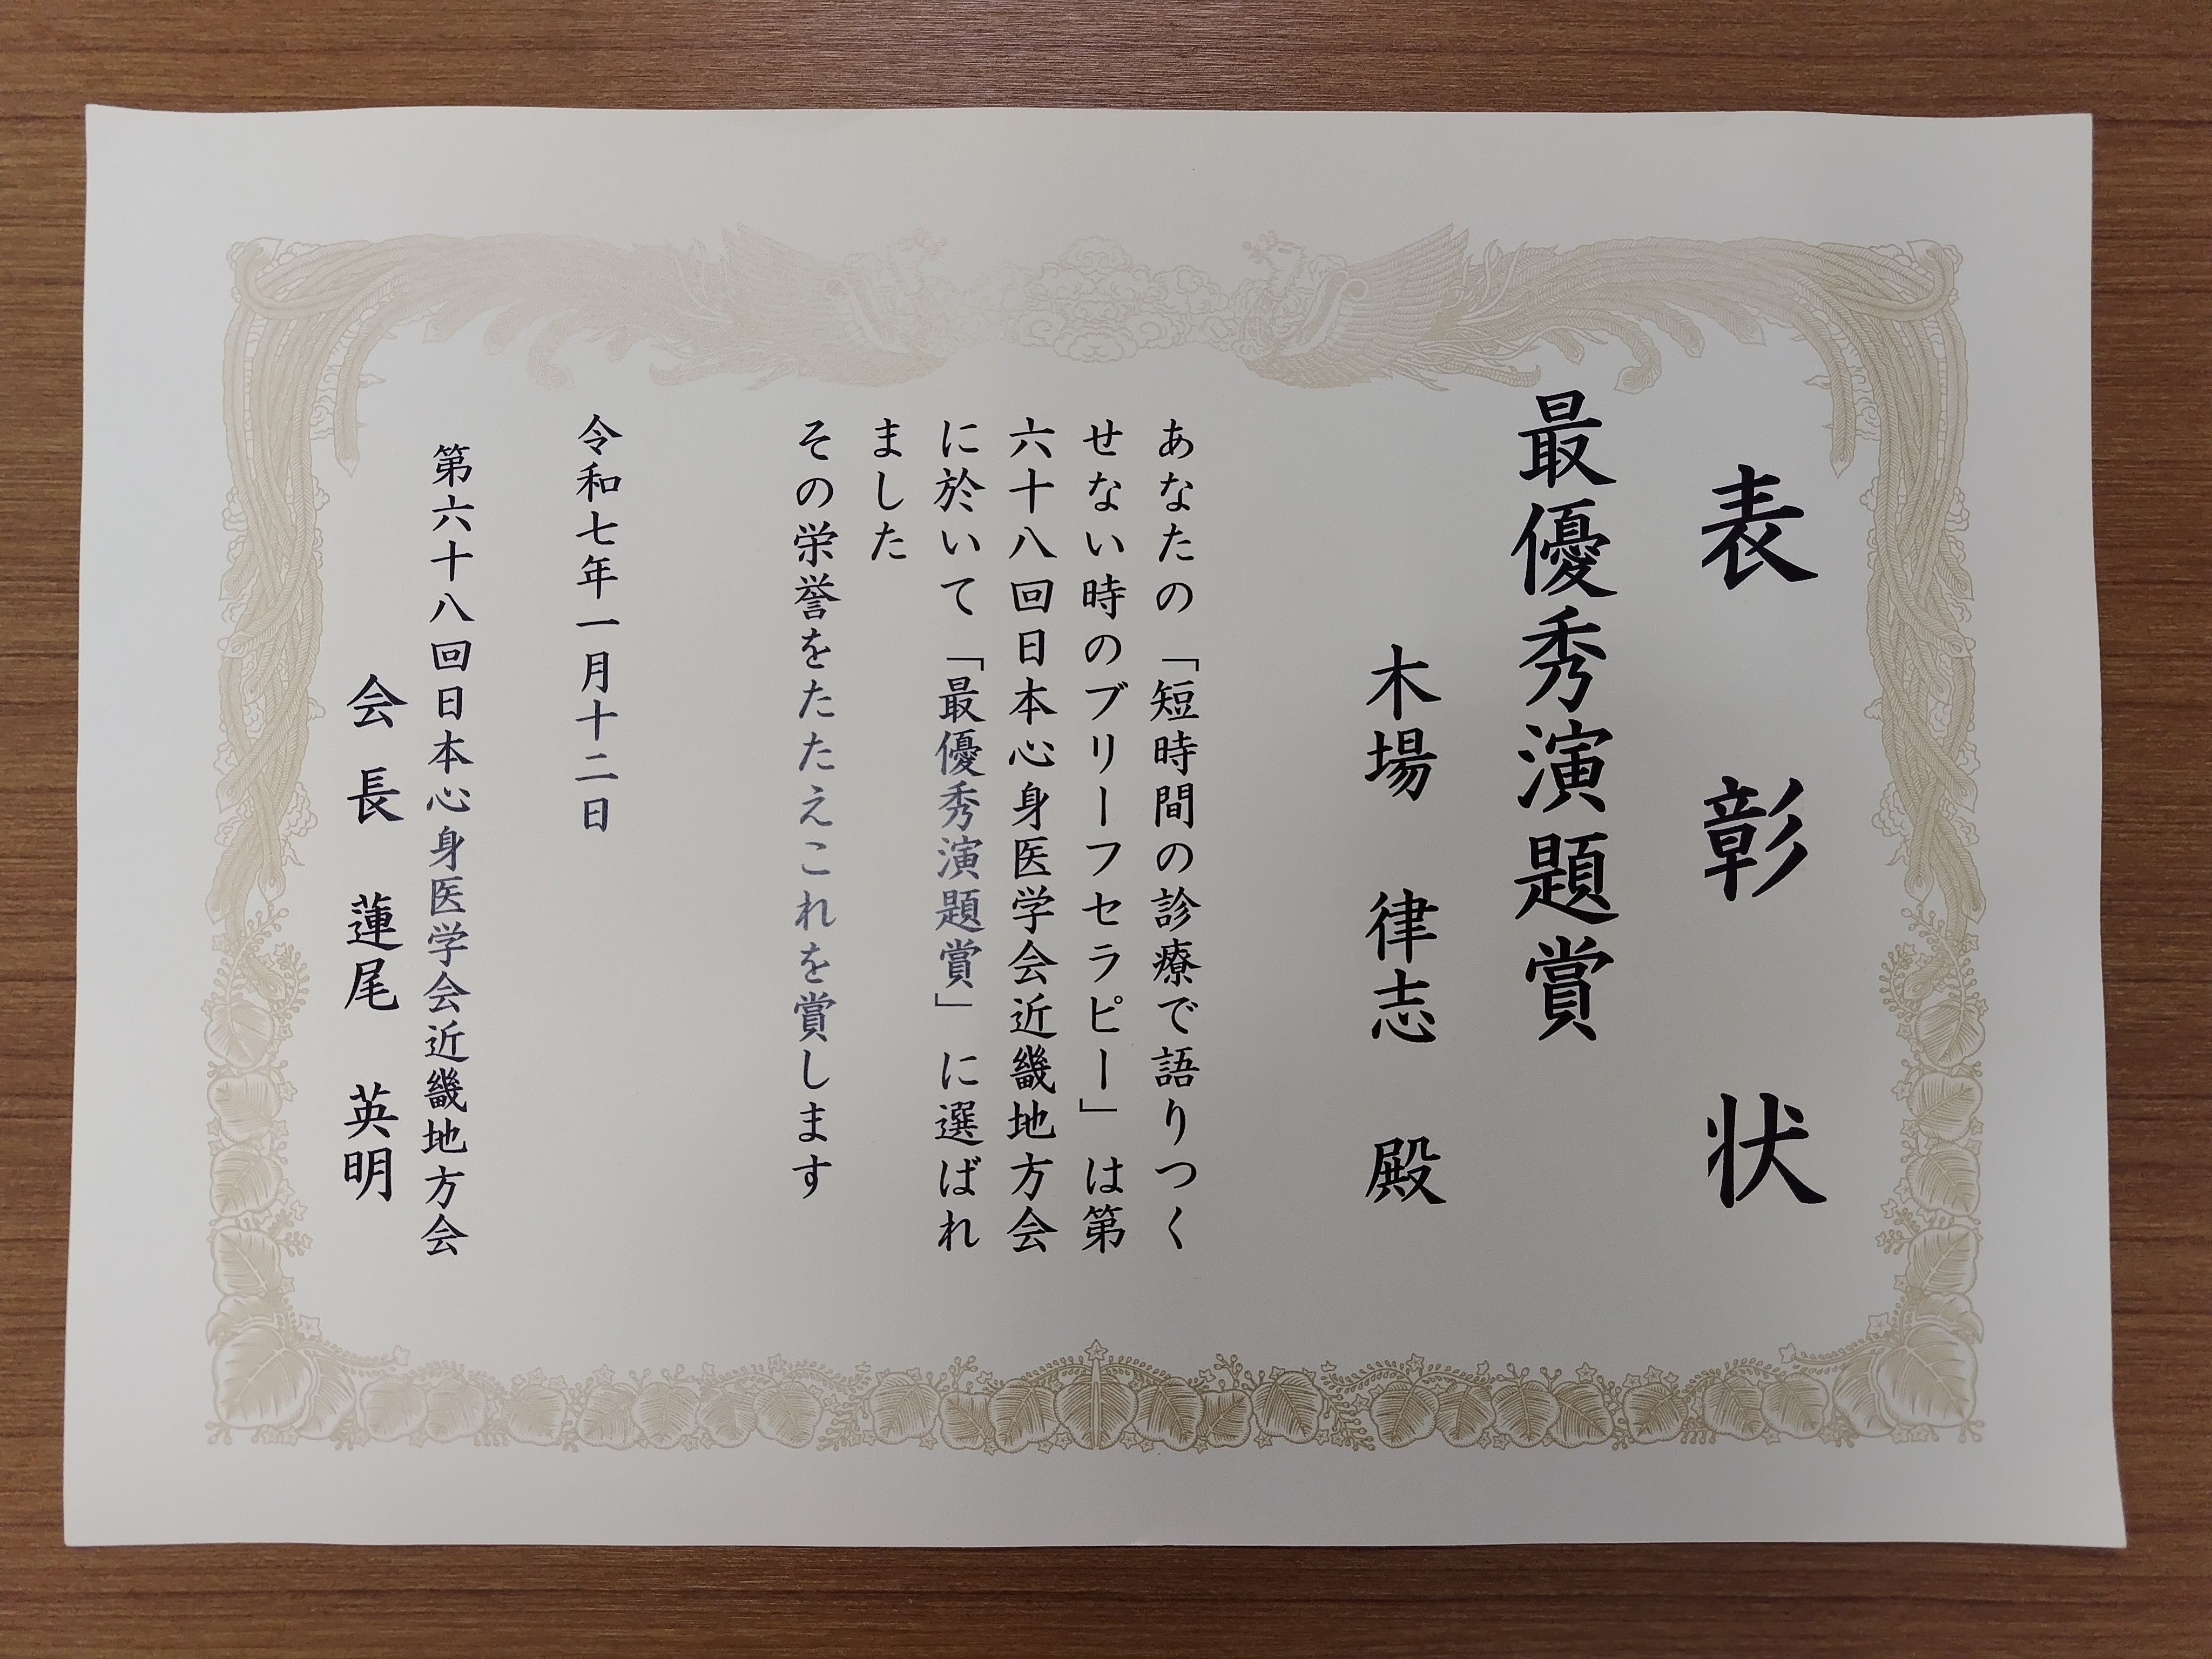 表彰状
最優秀演題賞
木場 律志 殿
あなたの「短時間の診療で語りつく
せない時のブリーフセラピー」は第
六十八回日本心身医学会近畿地方会
に於いて「最優秀演題賞」に選ばれ
ました
その栄誉をたたえこれを賞します
令和七年一月十二日
第六十八回日本心身医学会近畿地方会
会長 蓮尾 英明